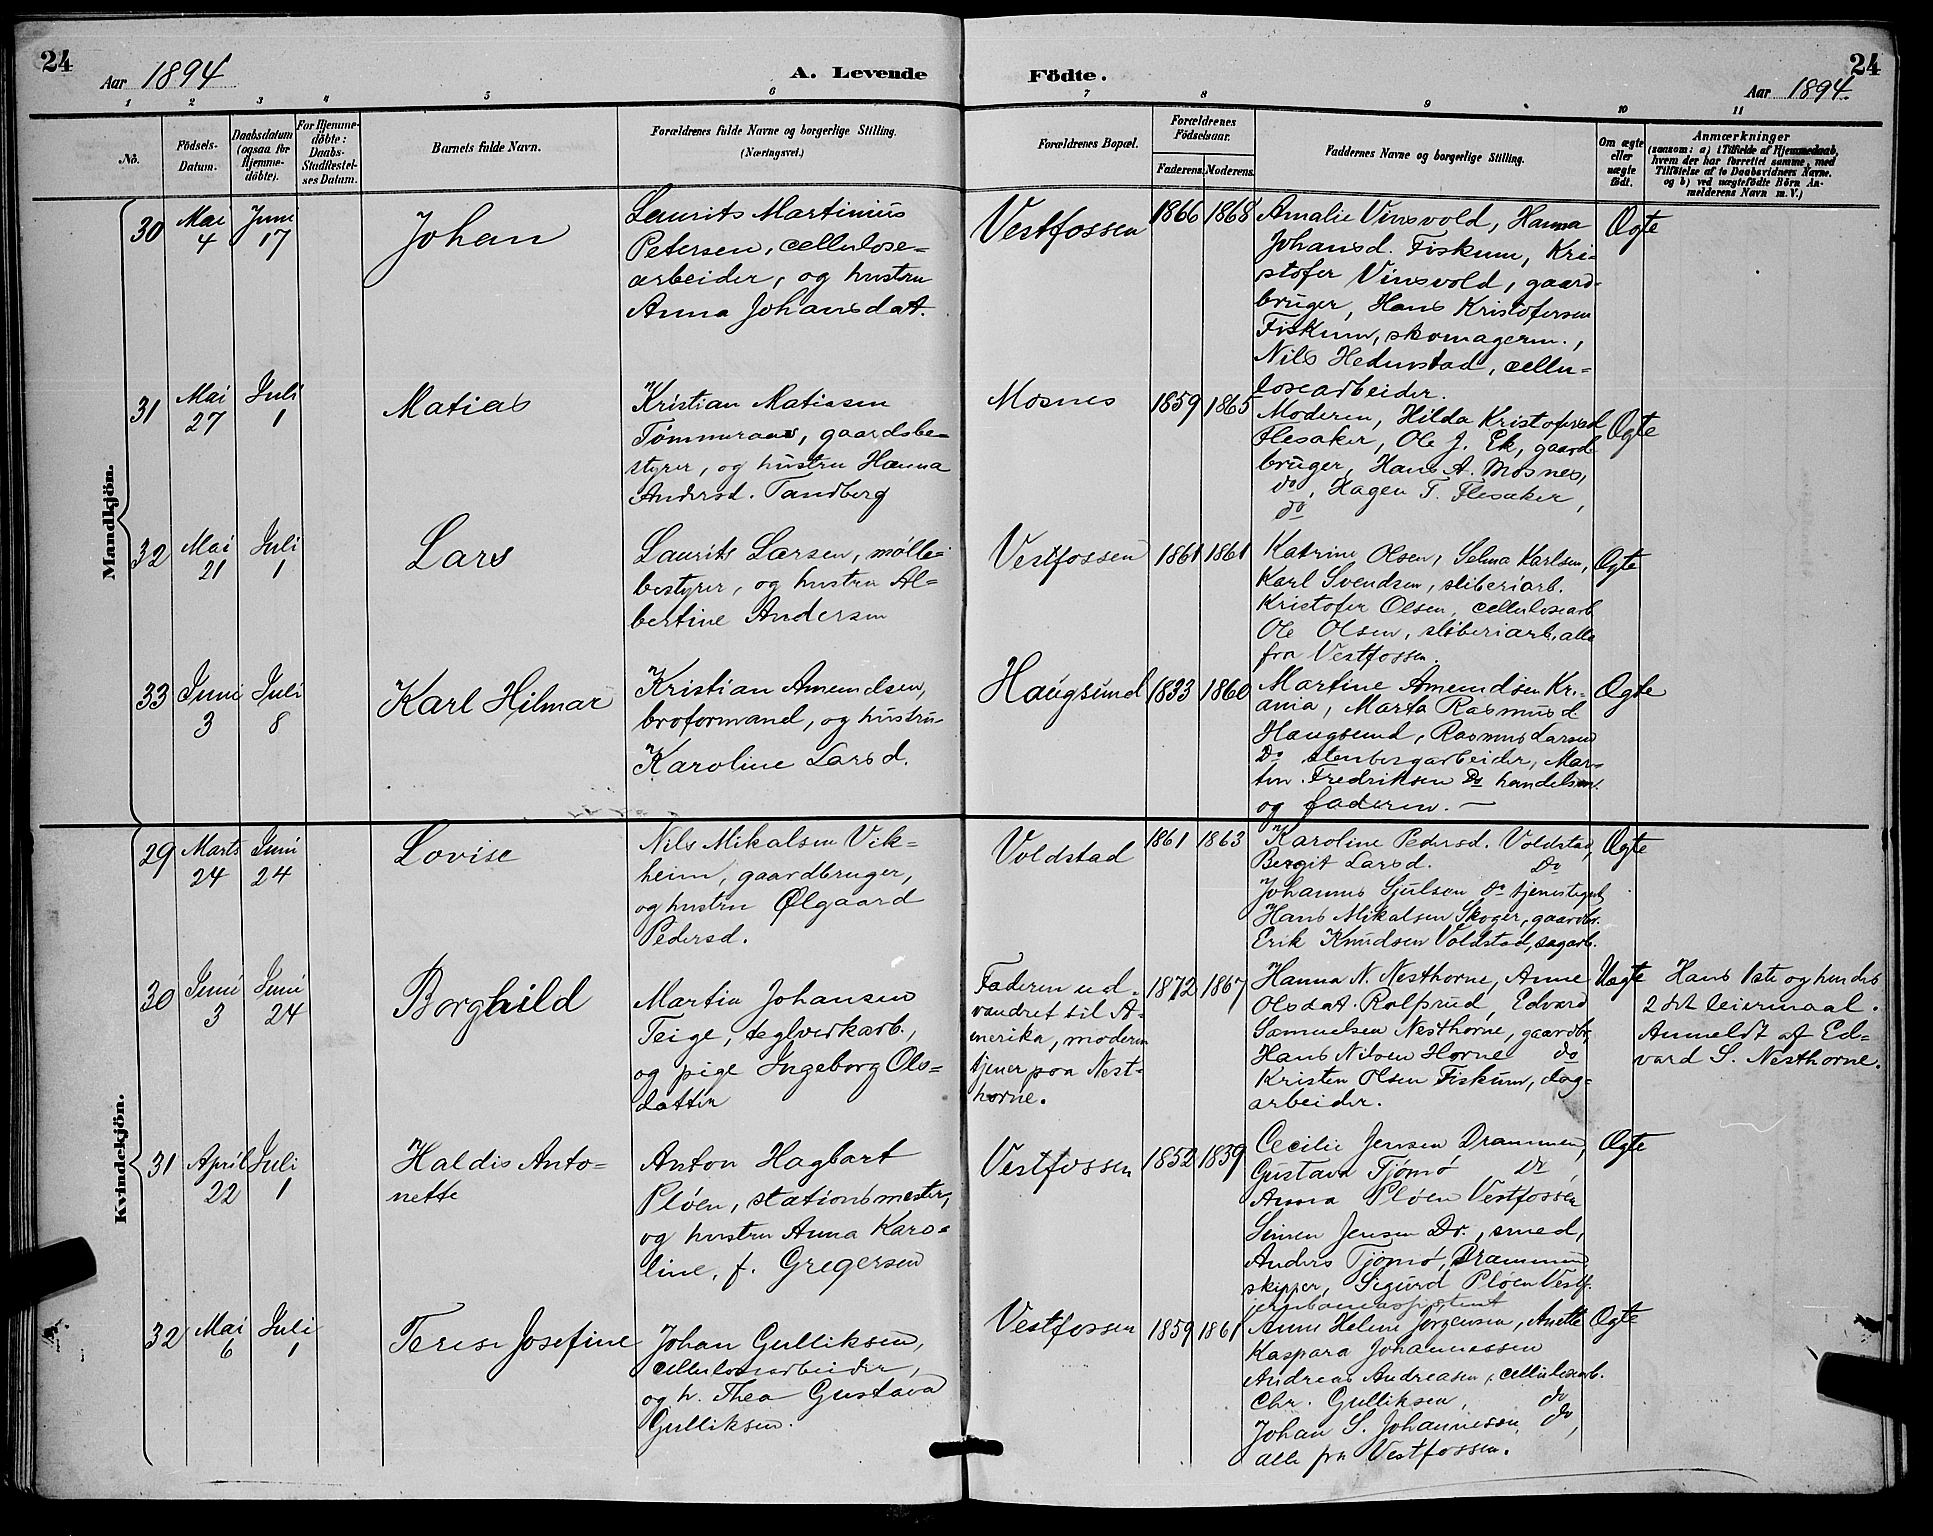 24
Aar 1894
A. Levende Födte.
24
Aar 1894.
1 2 3 4 5 6 7 8 9 10 11
No.
Födsels-Datum.
Daabsdatum (ogsaa for Hjemme-döbte).
For Hjemme-döbte: Daabs-Stadfæstel-ses Datum.
Barnets fulde Navn.
Forældrenes fulde Navne og borgerlige Stilling.
(Næringsvei.)
Forældrenes Bopæl.
Forældrenes Födselsaar.
Faderens. Moderens.
Faddernes Navne og borgerlige Stilling.
Om ægte eller uægte födt.
Anmærkninger
(saasom: a) i Tilfælde af Hjemmedaab,
hvem der har forrettet samme, med
Tilföielse af to Daabsvidners Navne.
og b) ved uægtefödte Börn An-
melderens Navn m. V.)
Mandkjön.
30
Mai 4
Juni 17
Johan
Laurits Martinius
Petersen, cellulose-
arbeider, og hustru
Anna Johansdat.
Vestfossen
1866 1868
Amalie Vinsvold, Hanna
Johansd. Fiskum, Kri-
stofer Vinsvold, gaard-
bruger, Hans Kristofersen
Fiskum, skomagerm.,
Nils Hedenstad, cellu-
losearbeider.
Ægte
31
Mai 27
Juli 1
Matias
Kristian Matiasen
Tömmeraas, gaardsbe-
styrer, og hustru Hanna
Andersd. Tandberg
Mosnes
1859 1865
Moderen, Hilda Kristofersd
Flesaker, Ole J. Ek, gaard-
bruger, Hans A. Mosnes,
do, Hagen T. Flesaker,
do
Ægte
32
Mai 21
Juli 1
Lars
Laurits Larsen, mölle-
bestyrer, og hustru Al-
bertine Andersen
Vestfossen
1861 1861
Katrine Olsen, Selma Karlsen,
Karl Svendsen, sliberiarb.
Kristofer Olsen, cellulosearb
Ole Olsen, sliberiarb, alle
fra Vestfossen.
Ægte
33
Juni 3
Juli 8
Karl Hilmar
Kristian Amundsen,
broformand, og hustru
Karoline Larsd.
Haugsund
1833 1860
Martine Amundsen Kr.-
ania, Marta Rasmusd
Haugsund, Rasmus Larsen
Do stenbergarbeider, Mar-
tin Fredriksen Do handelsm.
og faderen. —
Ægte
Kvindekjön.
29
Marts 24
Juni 24
Lovise
Nils Mikalsen Vik-
heim, gaardbruger,
og hustru Ølgaard
Pedersd.
Voldstad
1861 1863
Karoline Pedersd. Voldstad,
Bergit Larsd. Do
Johannes Sjulsen do tjenestegut
Hans Mikalsen Skoger, gaardbr.
Erik Knudsen Voldstad, sagarb.
Ægte
30
Juni 3
Juni 24
Borghild
Martin Johansen
Teige, teglverkarb.,
og pige Ingeborg Ols-
datter
Faderen ud-
vandret til A-
merika, moderen
tjener paa Nest-
horne.
1872 1867
Hanna N. Nesthorne, Anne
Olsdat. Rolfsrud, Edvard
Samuelsen Nesthorne, gaardbr,
Hans Nilsen Horne do
Kristen Olsen Fiskum, dag-
arbeider.
Uægte
Hans 1ste og hendes
2det leiermaal.
Anmeldt af Ed-
vard S. Nesthorne.
31
April 22
Juli 1
Haldis Anto-
nette
Anton Hagbart
Plöen, stationsmester,
og hustru Anna Karo-
line, f. Gregersen
Vestfossen
1852 1839
Cecilie Jensen Drammen,
Gustava Tjömö Do,
Anna Plöen Vestfossen
Simen Jensen Dr., smed,
Anders Tjömö, Drammen
skipper, Sigurd Plöen Vestf.
jernbaneassistent
Ægte
32
Mai 6
Juli 1
Terese Josefine
Johan Gulliksen,
cellulosearbeider,
og h. Thea Gustava
Gulliksen.
Vestfossen
1859 1861
Anne Helene Jörgensen, Anette
Kaspara Johannessen
Andreas Andreasen, cellulosearb.
Chr. Gulliksen, do
Johan S. Johannesen, do,
alle fra Vestfossen.
Ægte